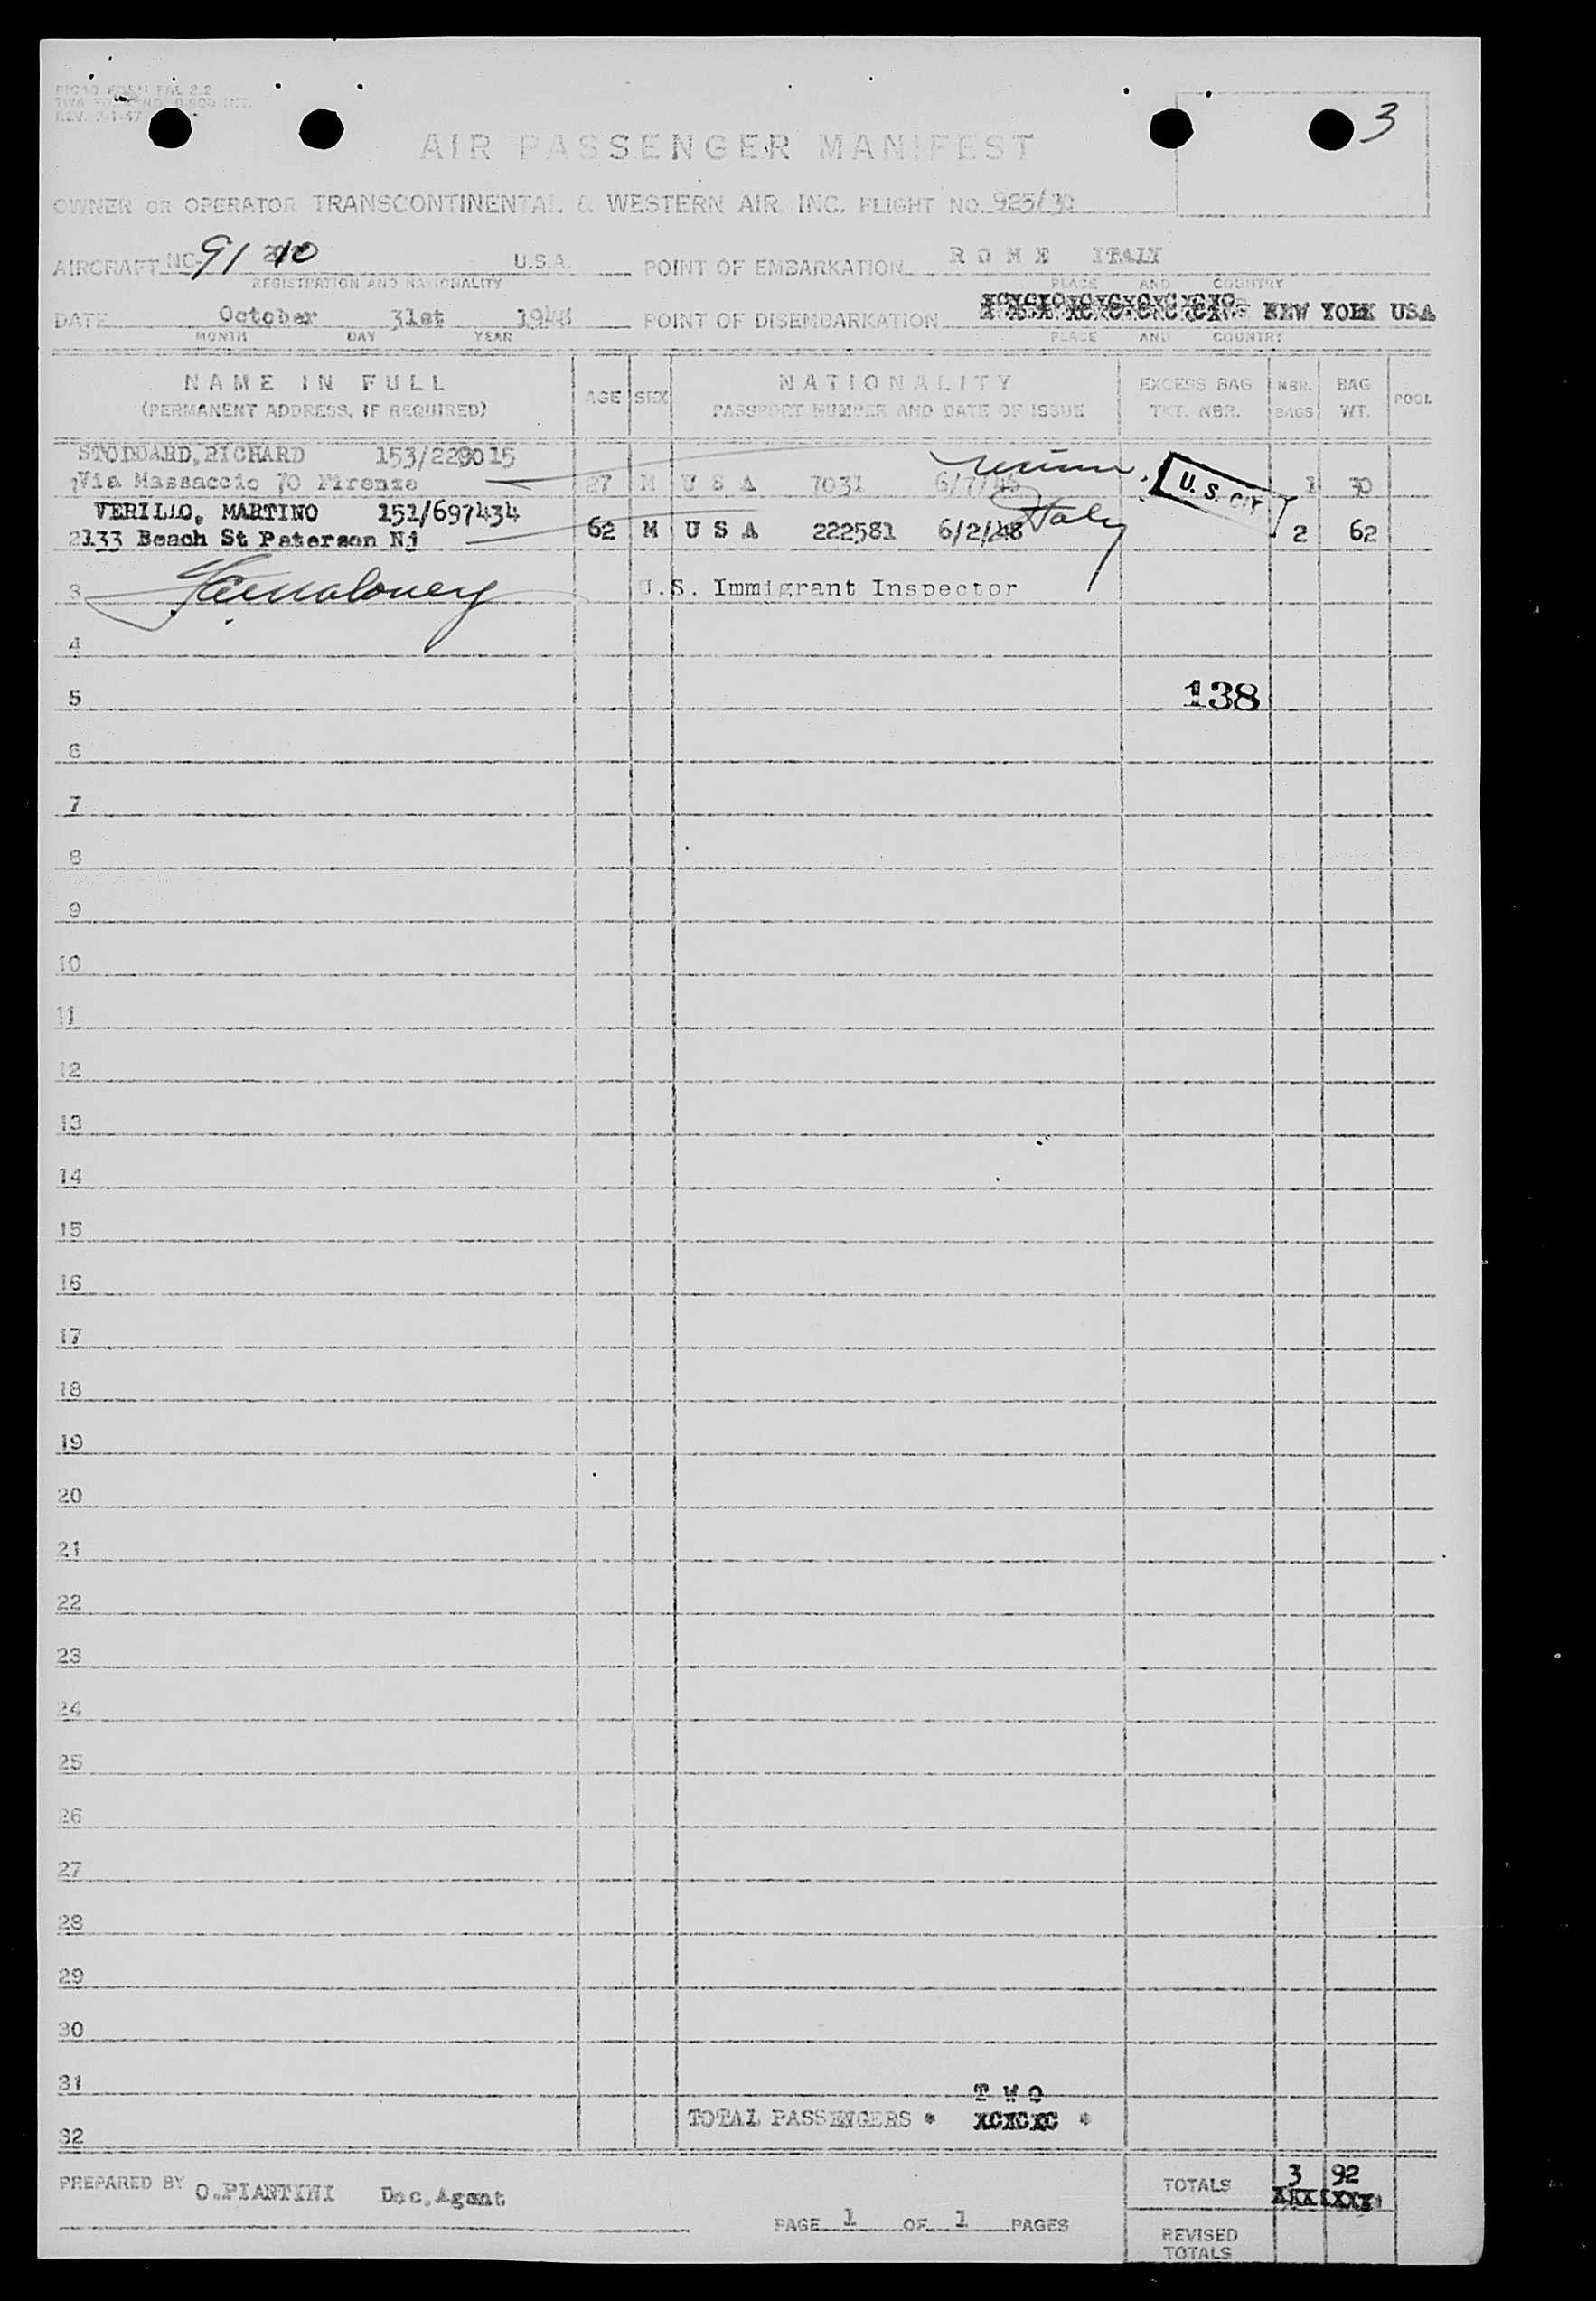 PICAO FORM FAL 2.2
TWA FORM NO. 0-800 INT.
REV. 2-1-47
3
AIR PASSENGER MANIFEST
OWNER OR OPERATOR TRANSCONTINENTAL & WESTERN AIR, INC. FLIGHT NO. 925/30
AIRCRAFT NC- 91 10 U.S.A. POINT OF EMBARKATION R O M E ITALY
REGISTRATION AND NATIONALITY PLACE AND COUNTRY
DATE October 31st 1948 POINT OF DISEMBARKATION NEW YORK USA
MONTH DAY YEAR PLACE AND COUNTRY
NAME IN FULL AGE SEX NATIONALITY EXCESS BAG NBR. BAG POOL
(PERMANENT ADDRESS, IF REQUIRED) PASSPORT NUMBER AND DATE OF ISSUE TKT. NBR. BAGS WT.
STODDARD, RICHARD 153/229015
1 Via Massaccio 70 Firenze 27 M U S A 7031 6/7/48 U. S. CIT 1 30
VERILLO, MARTINO 151/697434 Italy
2 133 Beach St Paterson Nj 62 M U S A 222581 6/2/48 2 62
3 U.S. Immigrant Inspector
4
5 138
6
7
8
9
10
11
12
13
14
15
16
17
18
19
20
21
22
23
24
25
26
27
28
29
30
31 T W O
32 TOTAL PASSENGERS * XCXCXC *
PREPARED BY O.PIANTINI Doc.Agent TOTALS 3 92
PAGE 1 OF 1 PAGES
REVISED
TOTALS